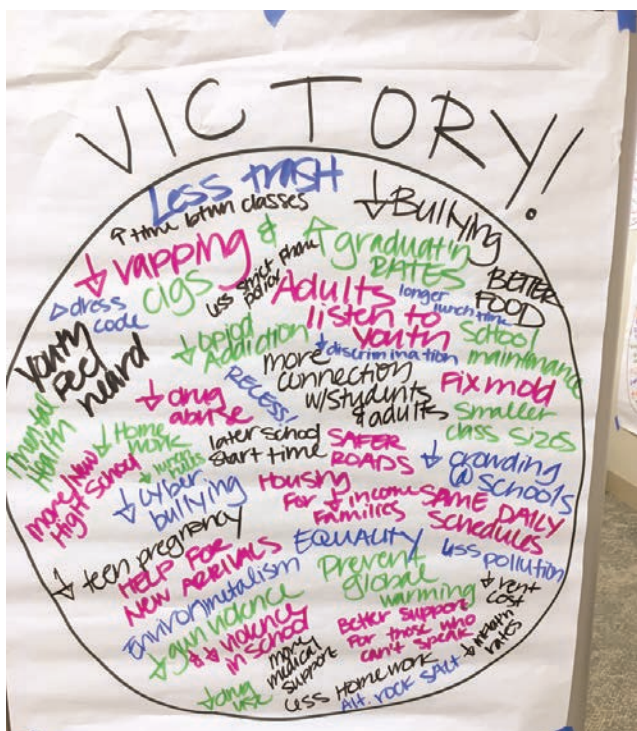 VICTORY!
Less trash
↑ time btwn classes
↓ Bullying
↓ vapping &
cigs
less strict phone
policy
↑ graduatin
RATES
BETTER
FOOD
Δ dress
code
Adults
listen to
youth
longer
lunch time
School
maintinance
youth
feel
heard
↓ opiod
Addiction
↓ discrimination
more
connection
w/students
& adults
Fix mold
↓ drug
abuse
RECESS!
smaller
class sizes
mental
Health
↓ Home
work
later school
start time
SAFER
ROADS
↓ crowding
@ schools
more/New
High School
↓ cyber
bullying
Housing
For ↓ income
Families
SAME DAILY
Schedules
↓ teen pregnancy
HELP FOR
NEW ARRIVALS
EQUALITY
less pollution
Environmetalism
Prevent
global
warming
↓ rent
cost
↓ gun violence
violence
in school
Better support
For those who
can't speak
rates
more
medical
support
↓ drug
use
Less Homework
Alt. rock salt